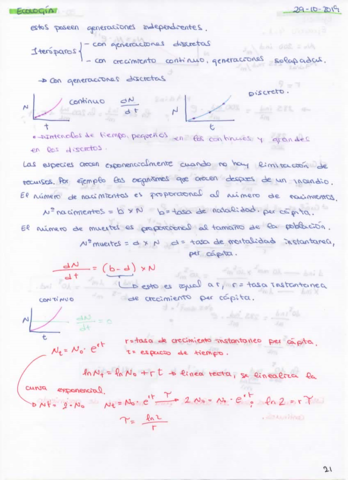 Ecología 29-10-2019
estos poseen generaciones independientes.
Iteróparos - con generaciones discretas
- con crecimiento continuo, generaciones solapadas.
→ con generaciones discretas
N continuo dN/dt t
N discreto. t
* intervalos de tiempo pequeños en los continuos y grandes
en los discretos.
Las especies crecen exponencialmente cuando no hay limitación de
recursos. Por ejemplo los organismos que crecen después de un incendio.
El número de nacimientos es proporcional al número de nacimientos.
Nº nacimientos = b × N b = tasa de natalidad, per cápita.
El número de muertes es proporcional al tamaño de la población.
Nº muertes = d × N d = tasa de mortalidad instantanea,
per cápita.
dN/dt = (b - d) × N
↳ a esto es igual a r, r = tasa instantanea
de crecimiento per cápita.
continuo
N dN/dt t
Nt = N0 · e^rt r = tasa de crecimiento instantaneo per cápita.
t = espacio de tiempo.
ln Nt = ln N0 + r t → linea recta, se linealiza la
curva exponencial.
→ Nt = 2 · N0 Nt = N0 · e^rt → 2 N0 = N0 · e^rτ ; ln 2 = r τ
τ = ln2/r
21